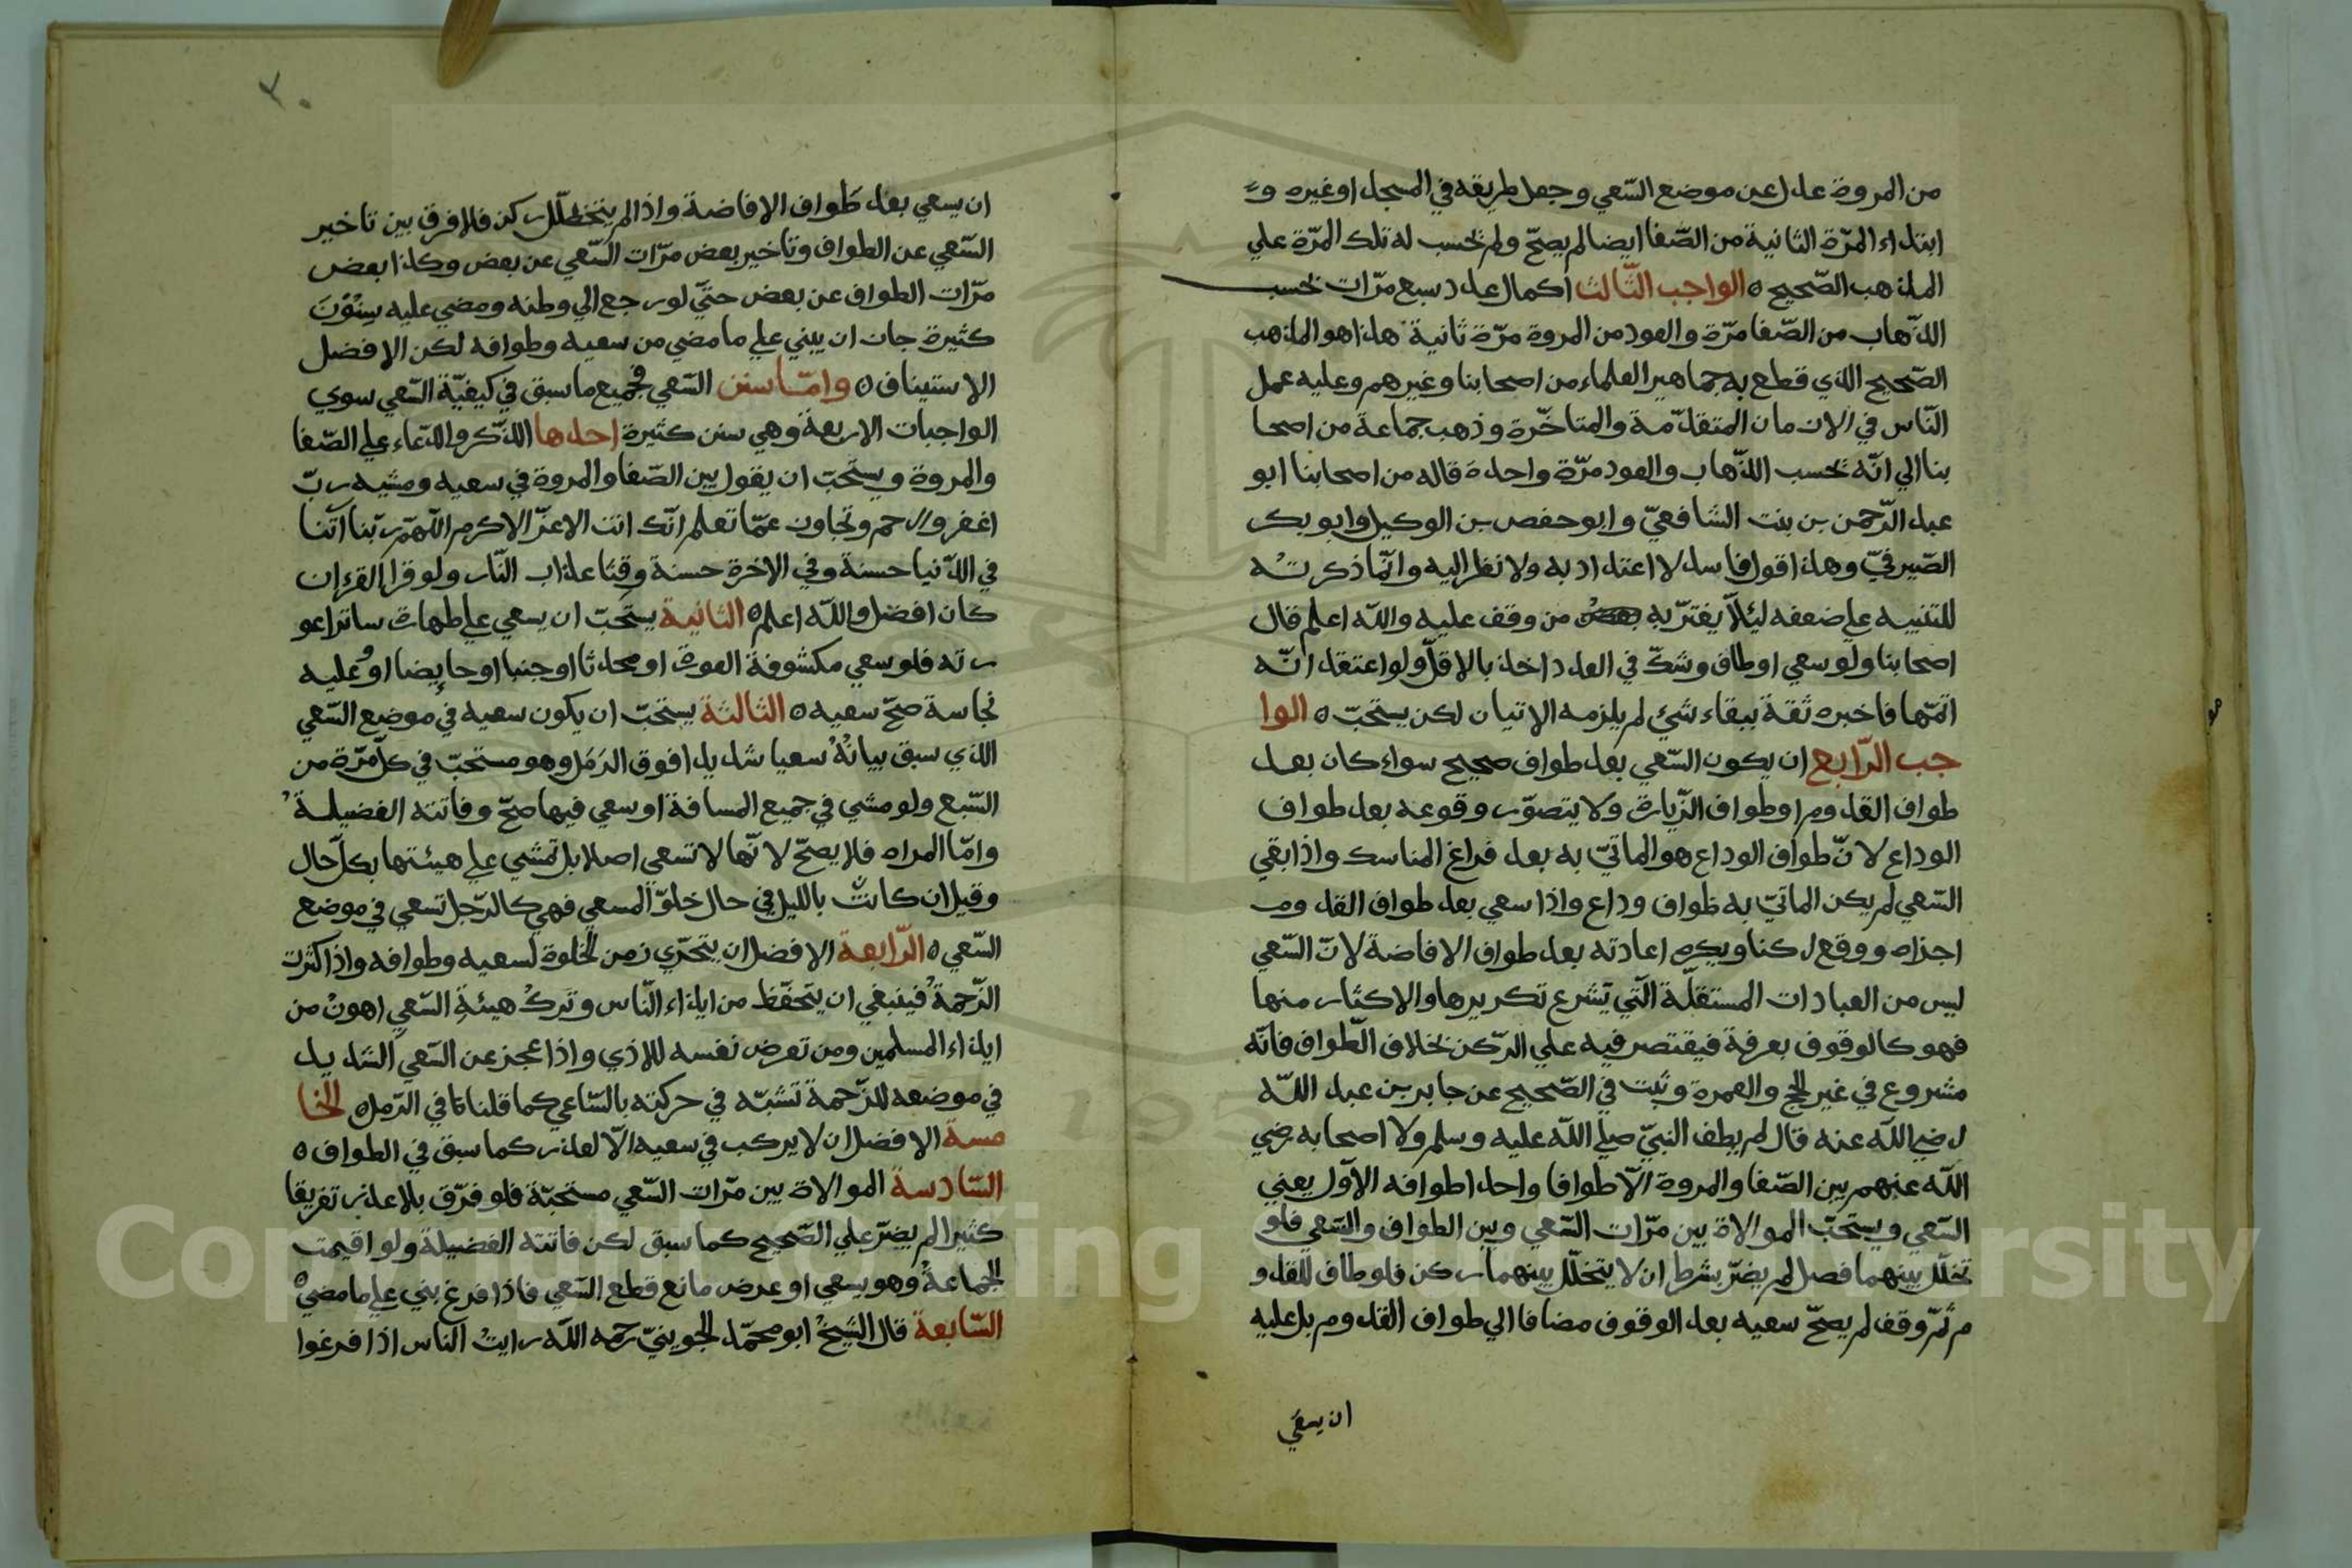 من المروة عدل عن موضع السّعي وجعل طريقه في المسجد او غيره و
ابتداء المرّة الثانية من الصّفا ايضا لم يصحّ ولم تحسب له تلك المرّة علي
المذهب الصّحيح ه الواجب الثّالث اكمال عدد سبع مرّات تحسب
الذّهاب من الصّفا مرّة والعود من المروة مرّة ثانية هذا هو المذهب
الصّحيح الذي قطع به جماهير العلماء من اصحابنا وغيرهم وعليه عمل
النّاس في الازمان المتقدّمة والمتاخّرة وذهب جماعة من اصحا
بنا الي انّه تحسب الذّهاب والعود مرّة واحدة قاله من اصحابنا ابو
عبد الرّحمن بن بنت الشافعيّ وابو حفص بن الوكيل وابو بكر
الصّيرفيّ وهذا قول فاسد لا اعتداد به ولا نظر اليه وانّما ذكرته
للتنبيه علي ضعفه ليئلّا يغترّ به من وقف عليه والله اعلم قال
اصحابنا ولو سعي او طاف وشكّ في العدد اخذ بالاقلّ ولو اعتقد انّه
اتمّها فاخبره ثقة ببقاء شيء لم يلزمه الاتيان لكن يستحبّ ه الوا
جب الرّابع ان يكون السّعي بعد طواف صحيح سواء كان بعد
طواف القدوم او طواف الزّيارة ولا يتصوّر وقوعه بعد طواف
الوداع لانّ طواف الوداع هو الماتيّ به بعد فراغ المناسك واذا بقي
السّعي لم يكن الماتيّ به طواف وداع واذا سعي بعد طواف القدوم
اجزاه ووقع ركنا ويكره اعادته بعد طواف الافاضة لانّ السّعي
ليس من العبادات المستقلّة الّتي تشرع تكريرها والاكثار منها
فهو كالوقوف بعرفة فيقتصر فيه علي الرّكن بخلاف الطّواف فانّه
مشروع في غير الحج والعمرة وثبت في الصّحيح عن جابر بن عبد اللّه
رضي اللّه عنه قال لم يطف النبيّ صلي اللّه عليه وسلم ولا اصحابه رضي
اللّه عنهم بين الصّفا والمروة الّا طوافا واحدا طوافه الاوّل يعني
السّعي ويستحبّ الموالاة بين مرّات السّعي وبين الطواف والسّعي فلو
تخلّل بينهما فصل لم يضرّ بشرط ان لا يتخلّل بينهما ركن فلو طاف للقدو
م ثمّ وقف لم يصحّ سعيه بعد الوقوف مضافا الي طواف القدوم بل عليه
ان يسعي
ان يسعي بعد طَواف الافاضة واذا لم يتخلّل ركن فلا فرق بين تاخير
السّعي عن الطواف وتاخير بعض مرّات السّعي عن بعض وكذا بعض
مرّات الطواف عن بعض حتّي لو رجع الي وطنه ومضي عليه سِنُوْنَ
كثيرة جاز ان يبني علي ما مضي من سعيه وطوافه لكن الافضل
الاستيناف ه وامّا سنن السّعي فجميع ما سبق في كيفيّة السّعي سوي
الواجبات الاربعة وهي سنن كثيرة احدها الذّكر والدّعاء علي الصّفا
والمروة ويستحبّ ان يقول بين الصّفا والمروة في سعيه ومشيه ربّ
اغفر وارحم وتجاوز عمّا تعلم انّك انت الاعزّ الاكرم اللّهمّ ربّنا آتنا
في الدّنيا حسنة وفي الاخرة حسنة وقنا عذاب النّار ولو قرا القرءان
كان افضل واللّه اعلم ه الثانية يستحبّ ان يسعي علي طهارة ساترا عو
رته فلو سعي مكشوفة العورة او محدثا او جنبا او حايضا او عليه
نجاسة صحّ سعيه ه الثالثة يستحبّ ان يكون سعيه في موضع السّعي
الذي سبق بيانُهُ سعيا شديدا فوق الرّمَل وهو مستحبّ في كلّ مرّة من
السّبع ولو مشي في جميع المسافة او سعي فيها صحّ وفاتته الفضيلةُ
وامّا المراه فلا يصحّ لانّها لا تسعي اصلا بل تمشي علي هيئتها بكلّ حال
وقيل ان كانتْ بالليل في حال خلوّ المسعي فهي كالرّجل تسعي في موضع
السّعي ه الرّابعة الافضل ان يتحرّي زمن الخلوة لسعيه وطوافه واذا كثرت
الزّحمةُ فينبغي ان يتحفّظ من ايذاء النّاس وتركُ هيئةِ السّعي اهونُ من
ايذاء المسلمين ومن تعرض نفسه للاذي واذا عجز عن السّعي الشديد
في موضعه للزّحمة تشبّه في حركته بالسّاعي كما قلنا في الرّمل ه الخا
مسة الافضل ان لا يركب في سعيه الّا لعذر كما سبق في الطواف ه
السّادسة الموالاة بين مرّات السّعي مستحبّة فلو فرّق بلا عذر تفريقا
كثيرا لم يضرّ علي الصّحيح كما سبق لكن فاتته الفضيلة ولو اقيمت
الجماعةُ وهو يسعي او عرض مانع قطع السّعي فاذا فرغ بني علي ما مضي ه
السّابعة قال الشّيخُ ابو محمّد الجوينيّ رحمه اللّه رايتُ الناس اذا فرغوا
Copyright © King Saud University